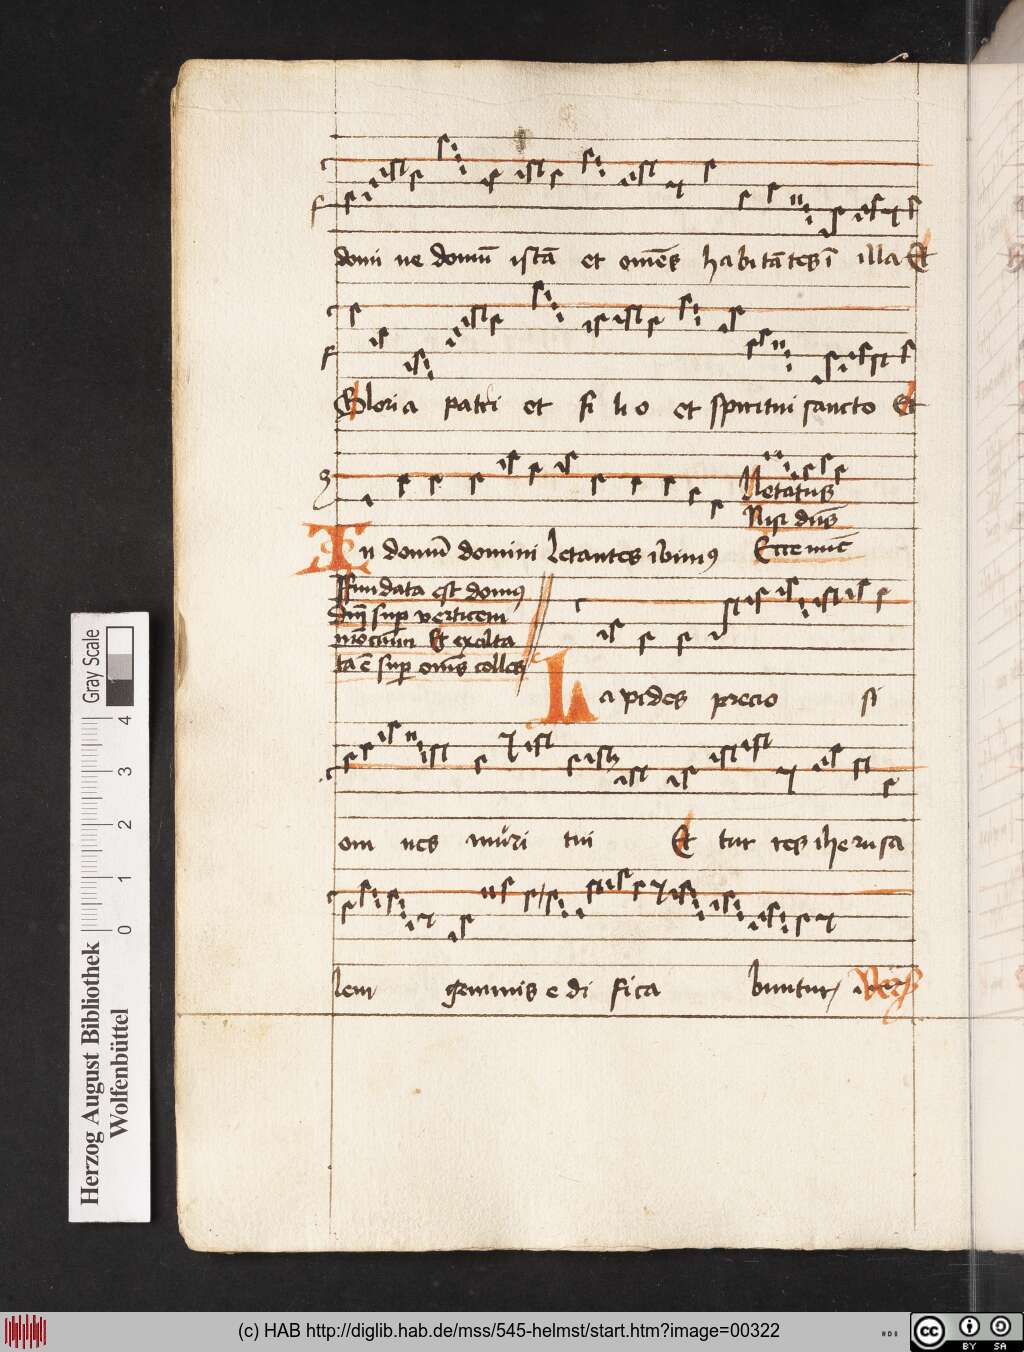 domi ne domū istā et om̄es habitātes ī illa Et
Gloria patri et fi lio et spiritui sancto Et
Letatus
Nisi dn̄s
In domū domini letantes ibimꝰ Ecce nūc
ffundata est domꝰ
dn̄i sup verticem
mōciūm Et exalta
ta ē sup om̄s colles
La pides precio si
om nes muri tui Et tur res iherusa
lem gemmis e di fica buntur
Gray Scale
4
3
2
1
0
Herzog August Bibliothek
Wolfenbüttel
(c) HAB http://diglib.hab.de/mss/545-helmst/start.htm?image=00322
cc
BY SA